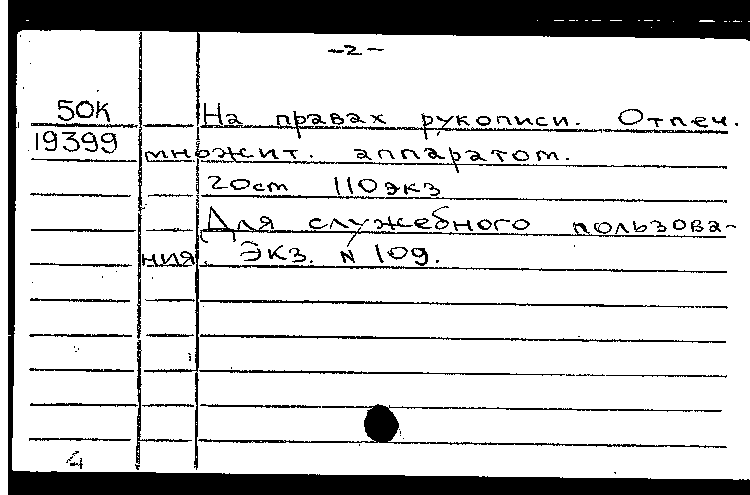 -2-
50К На правах рукописи. Отпеч.
19399 множит. аппаратом.
20ст 110экз
Для служебного пользова-
ния. Экз. N 109.
4